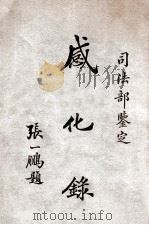 司法部鑒定
感化錄
張一鵬題